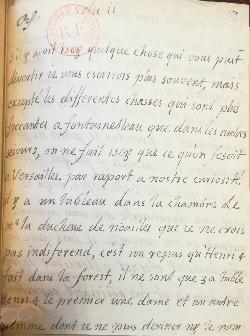 11
s'il y avoit issy quelque chose qui vous peut
divertir ie vous escrirois plus souvent, mais
excepté les differentes chasses qui sont plus
frecantes a fontainebleau que dans les autres
sesours, on ne fait issy que ce qu'on fesoit
a Versailles. par raport a nostre curiosité
il y a un tableau dans la chambre de
mᵉ la duchesse de noailles que ie ne crois
pas indiferend, c'est un repas qu'Henri 4
fait dans la forest, il ne sont que 3 a table
Henri 4 le premier une dame et un autre
homme dont ie ne puis le nom